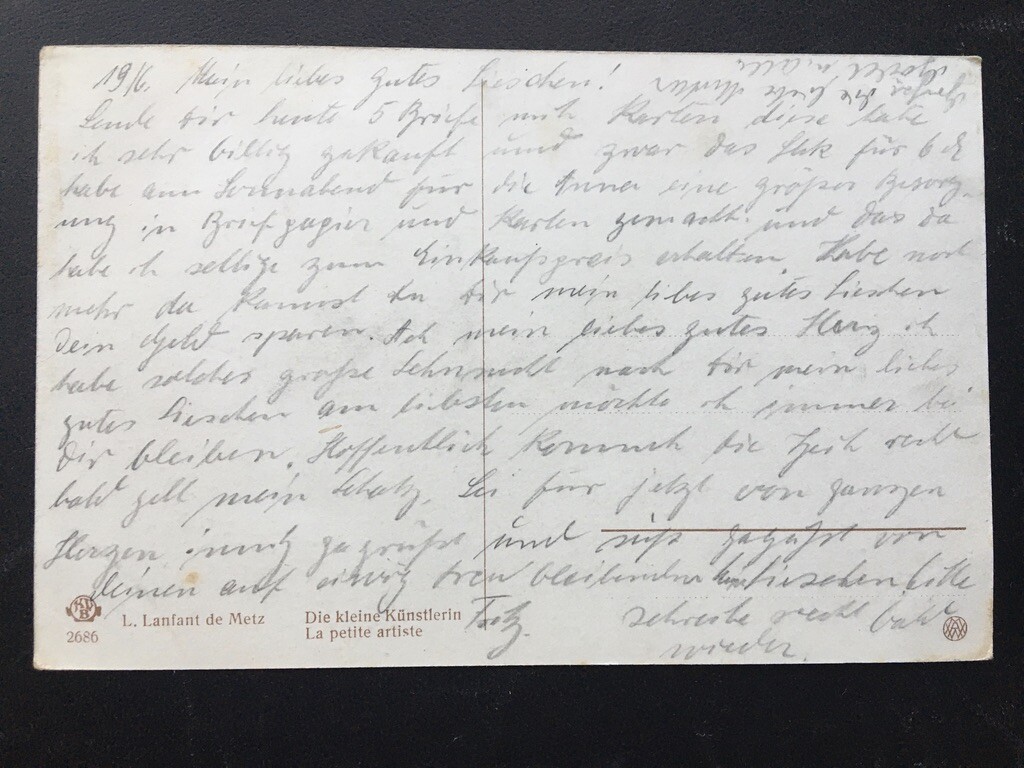 19/6. Mein liebes gutes Lieschen!
Sende dir heute 5 Briefe mit Karten diese habe
ich sehr billig gekauft und zwar das Stk für 6 d
habe am Sonnabend für die Anna eine großes Besorg-
ung in Briefpapier und Karten gemacht. und das da
habe ich selbige zum Einkaufspreis erhalten. Habe noch
mehr da kannst du dir mein liebes gutes Lieschen
dein Geld sparen. Ach mein liebes gutes Herz ich
habe solches große Sehnsucht nach dir mein liebes
gutes Lieschen am liebsten möchte ich immer bei
dir bleiben. Hoffentlich kommt die Zeit recht
bald gell mein Schatz. Sei für jetzt von ganzen
Herzen innig gegrüßt und süß geküßt von
deinen auf ewig treu bleibenden Lieschen bitte
Fritz. schreibe recht bald
wieder.
HKB
2686
L. Lanfant de Metz
Die kleine Künstlerin
La petite artiste